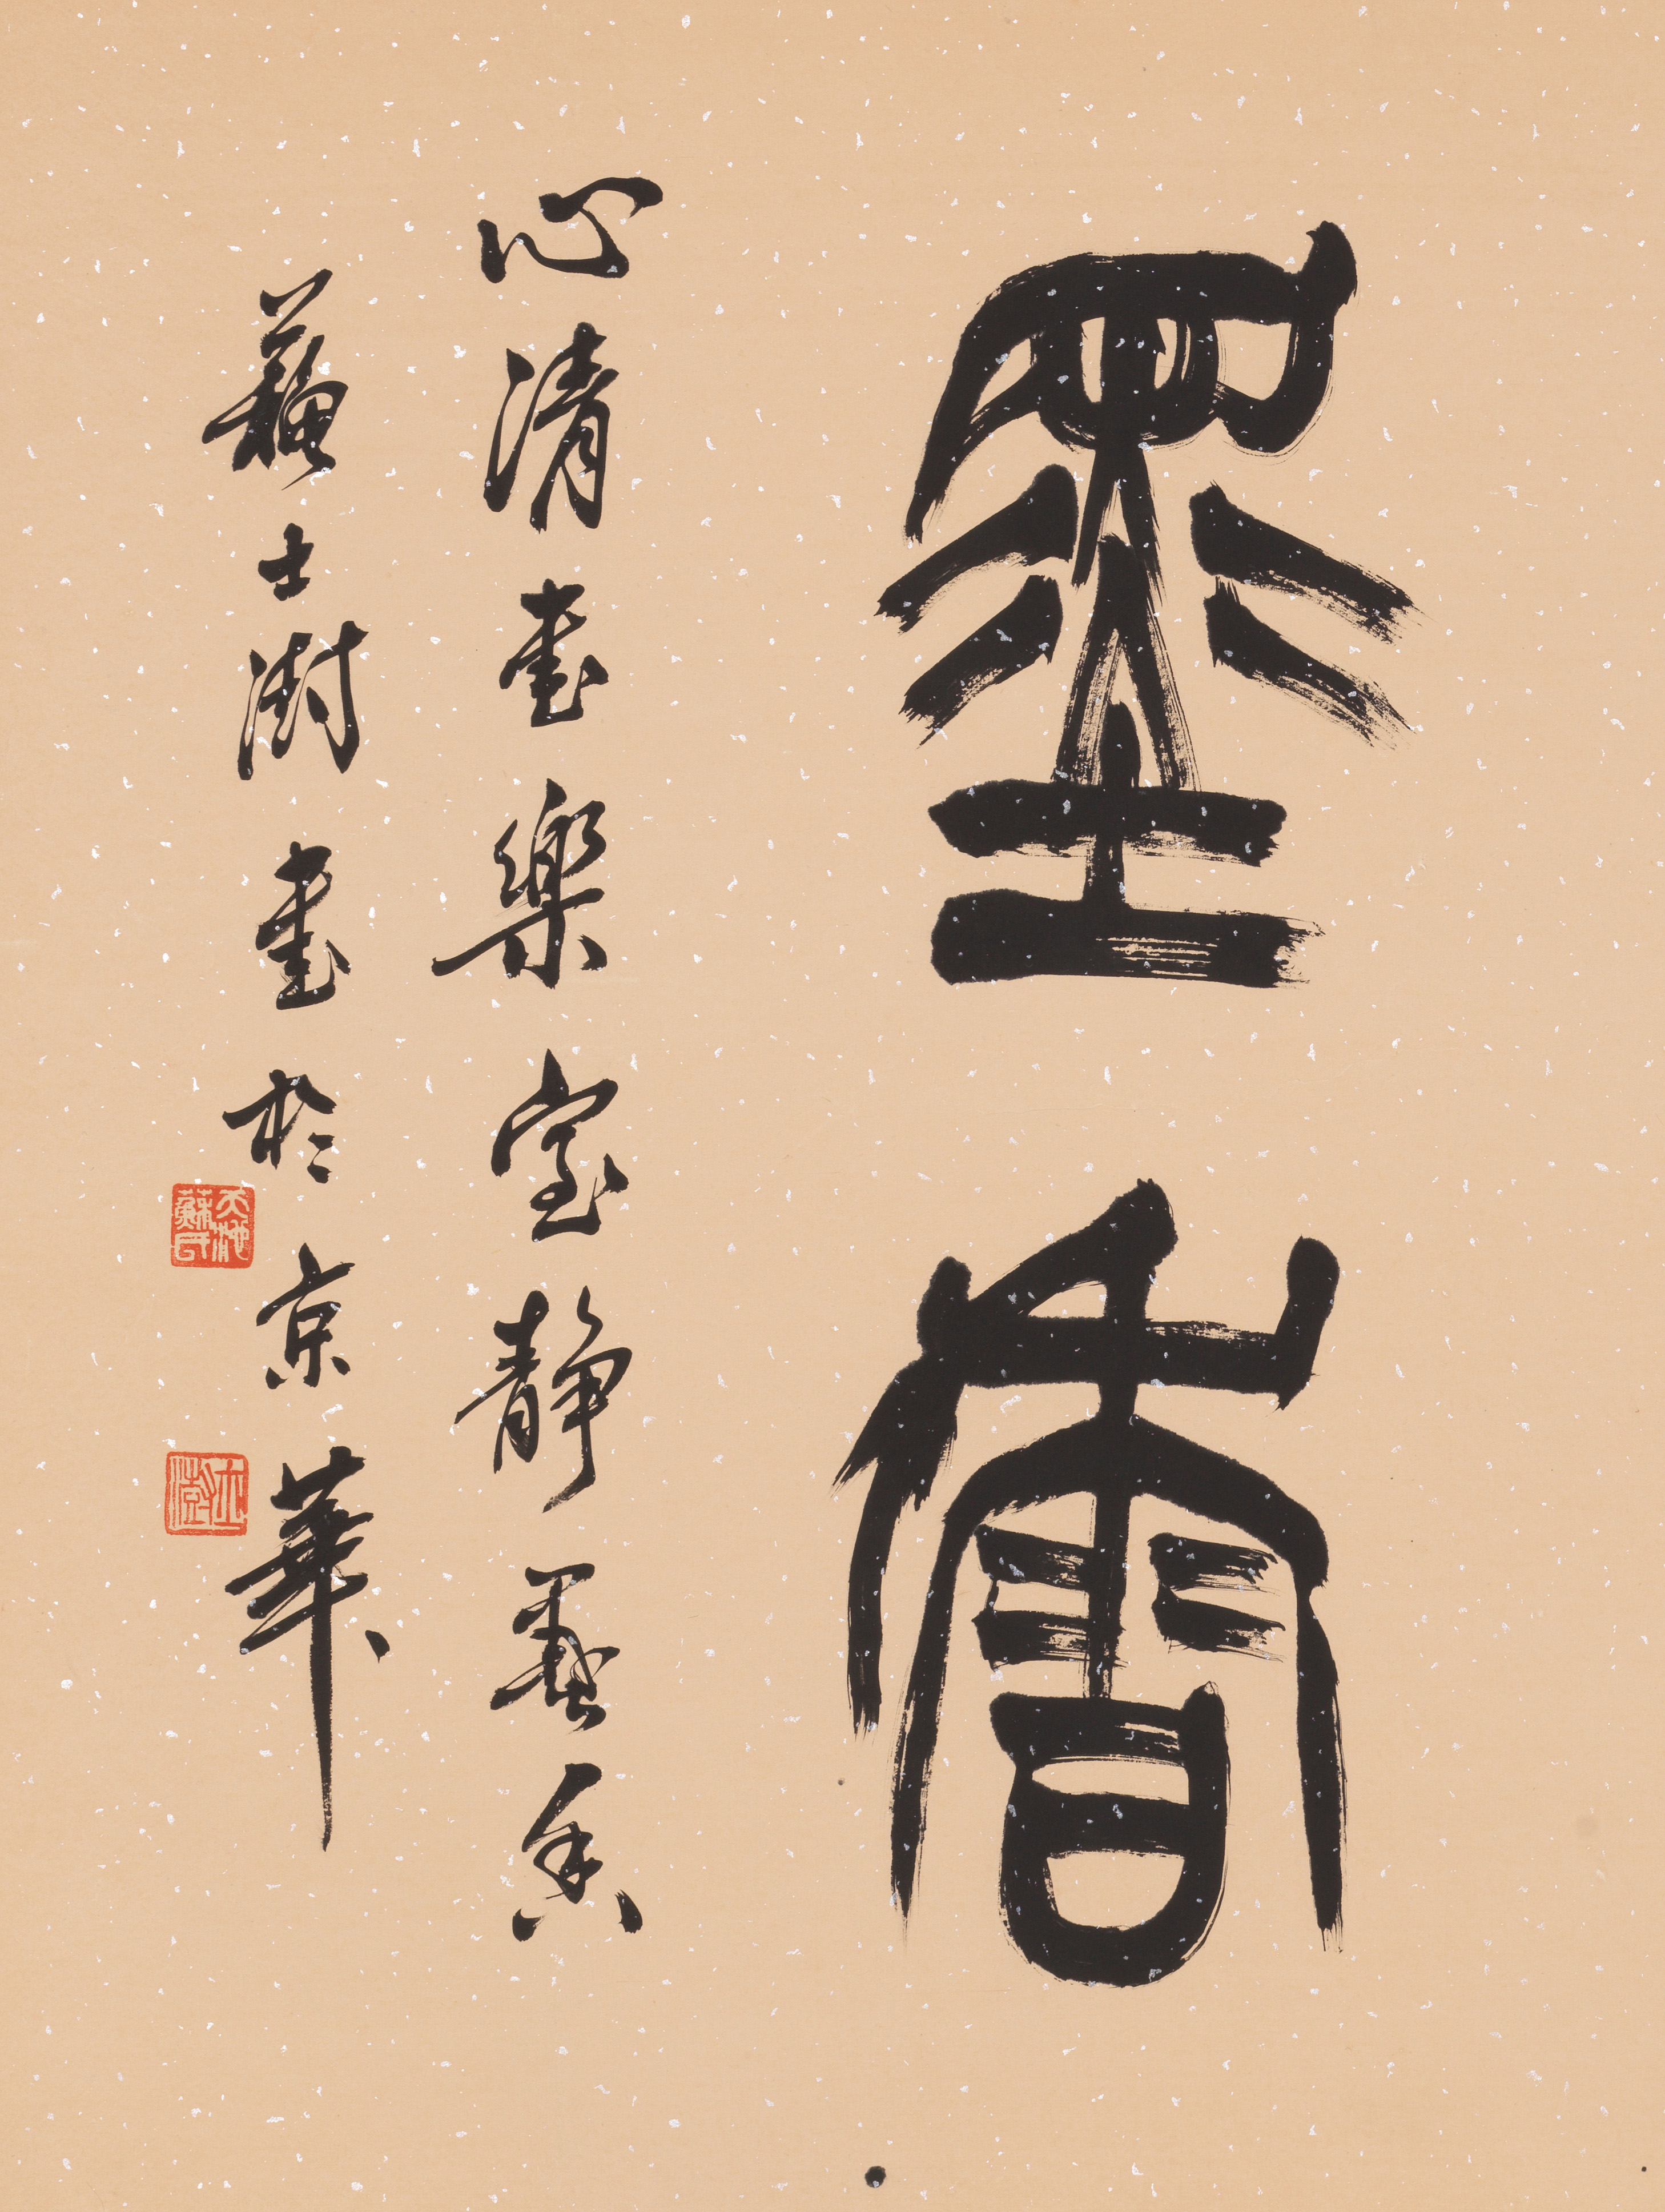 墨香
心清書樂室靜墨香
蘇士澍書於京華
士澍